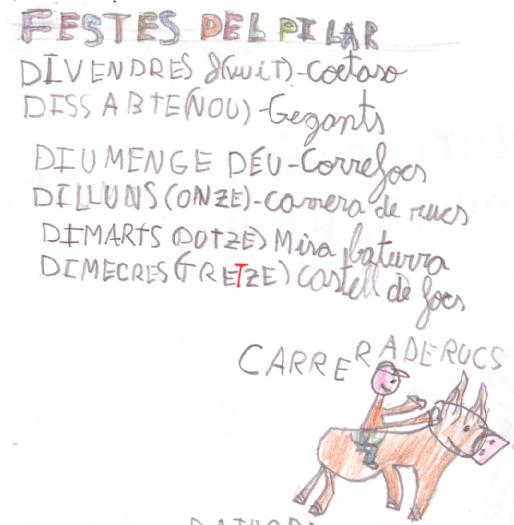 FESTES DEL PILAR
DIVENDRES 8(vuiT)-Coetaso
DISSABTE(NOU)-Gegants
DIUMENGE DEU-Correfocs
DILLUNS(ONZE)-carrera de rucs
DIMARTS (DOTZE) Misa baturra
DIMECRES(TRETZE) Castell de focs
CARRERADERUCS